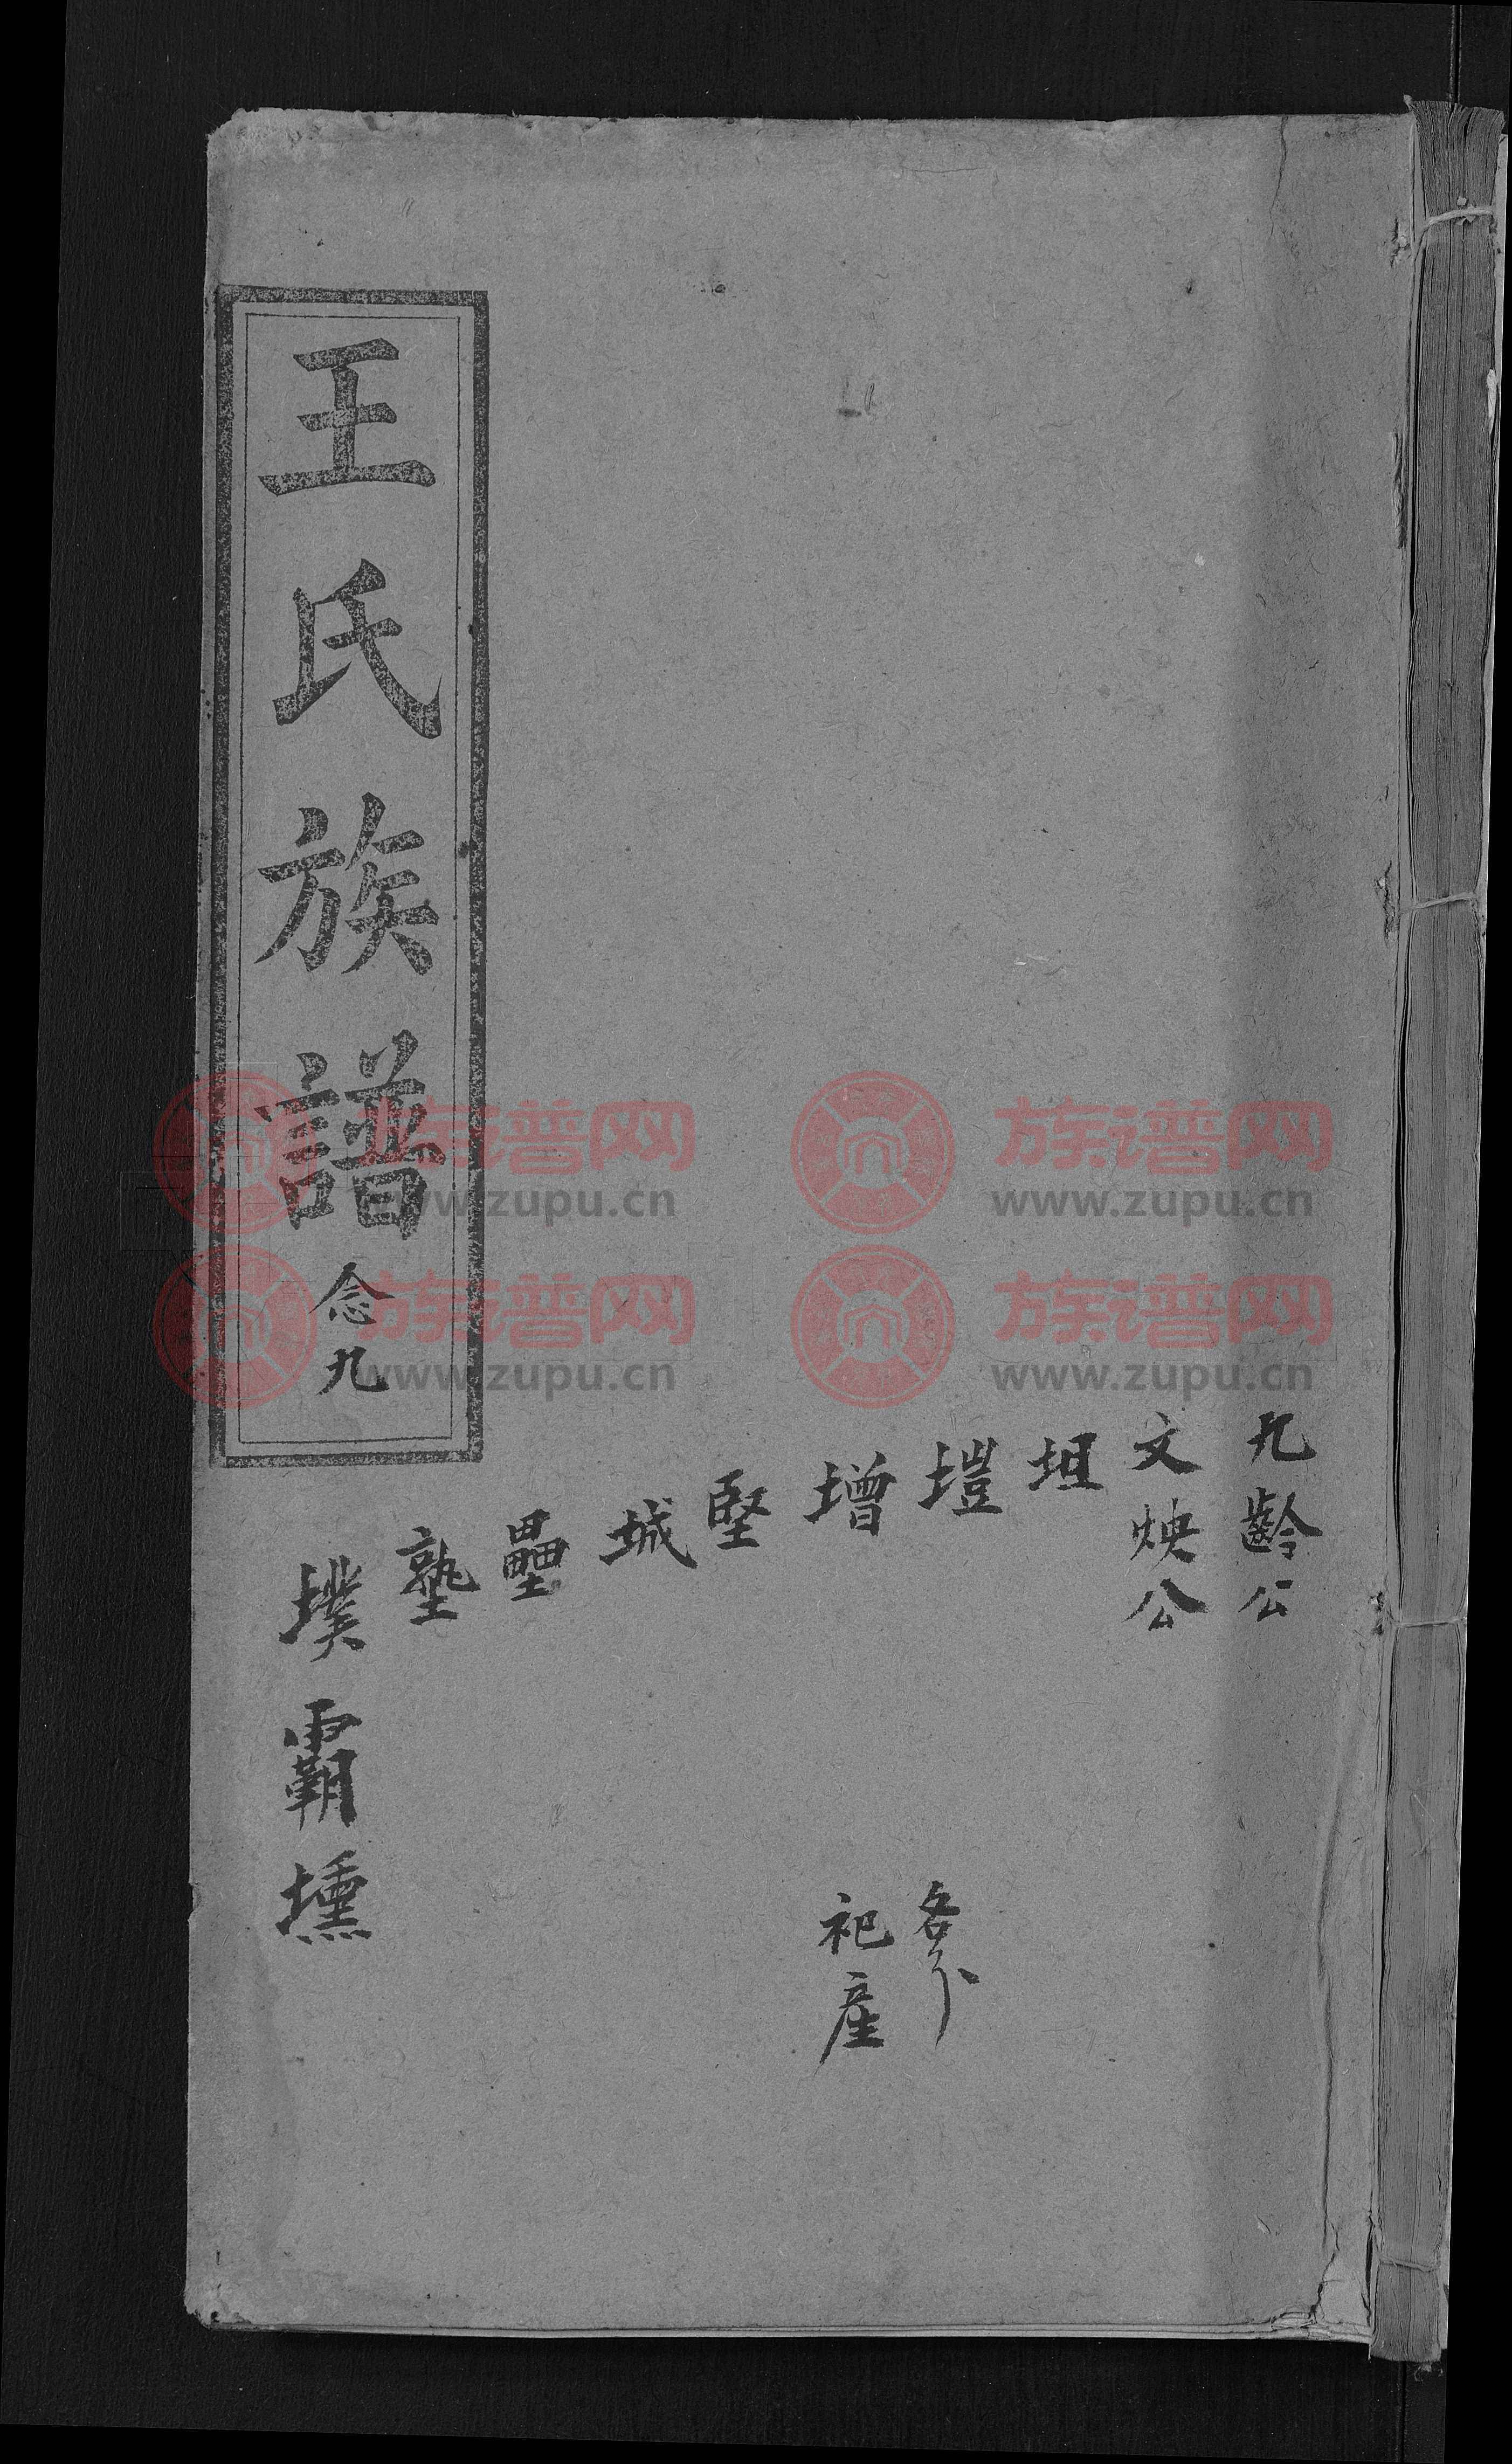 九齡公
文焕公
坦
塏
增
堅
城
壘
塾
墣
霸
壎
各
祀產
王氏族譜
念九
族谱网
www.zupu.cn
族谱网
www.zupu.cn
族谱网
www.zupu.cn
族谱网
www.zupu.cn